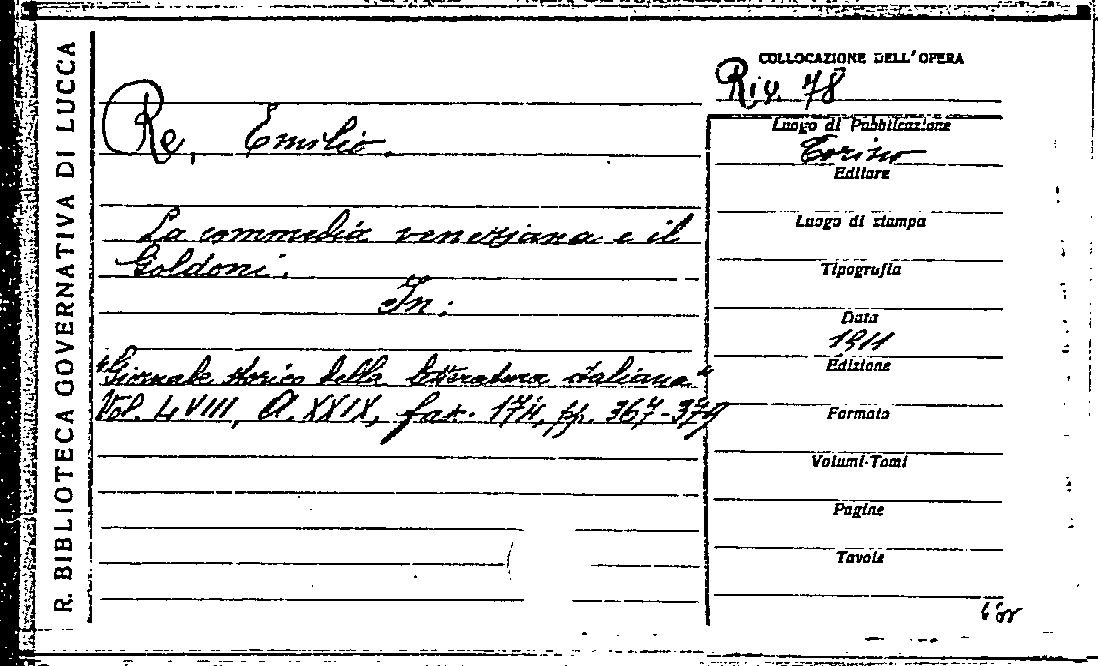 R. BIBLIOTECA GOVERNATIVA DI LUCCA
Re, Emilio.
La commedia veneziana e il
Goldoni.
In:
"Giornale storico della letteratura italiana"
Vol. LVIII, A. XXIX, fasc. 174, pp. 367-379
COLLOCAZIONE DELL'OPERA
Riv. 78
Luogo di Pubblicazione
Torino
Editore
Luogo di stampa
Tipografia
Data
1911
Edizione
Formato
Volumi-Tomi
Pagine
Tavole